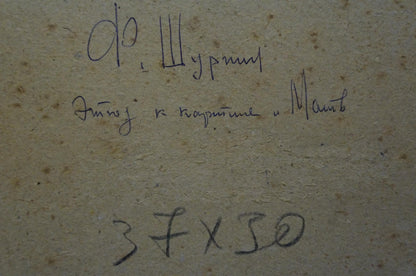 Ф. Шурпин
Этюд к картине „Мать
37 x 30